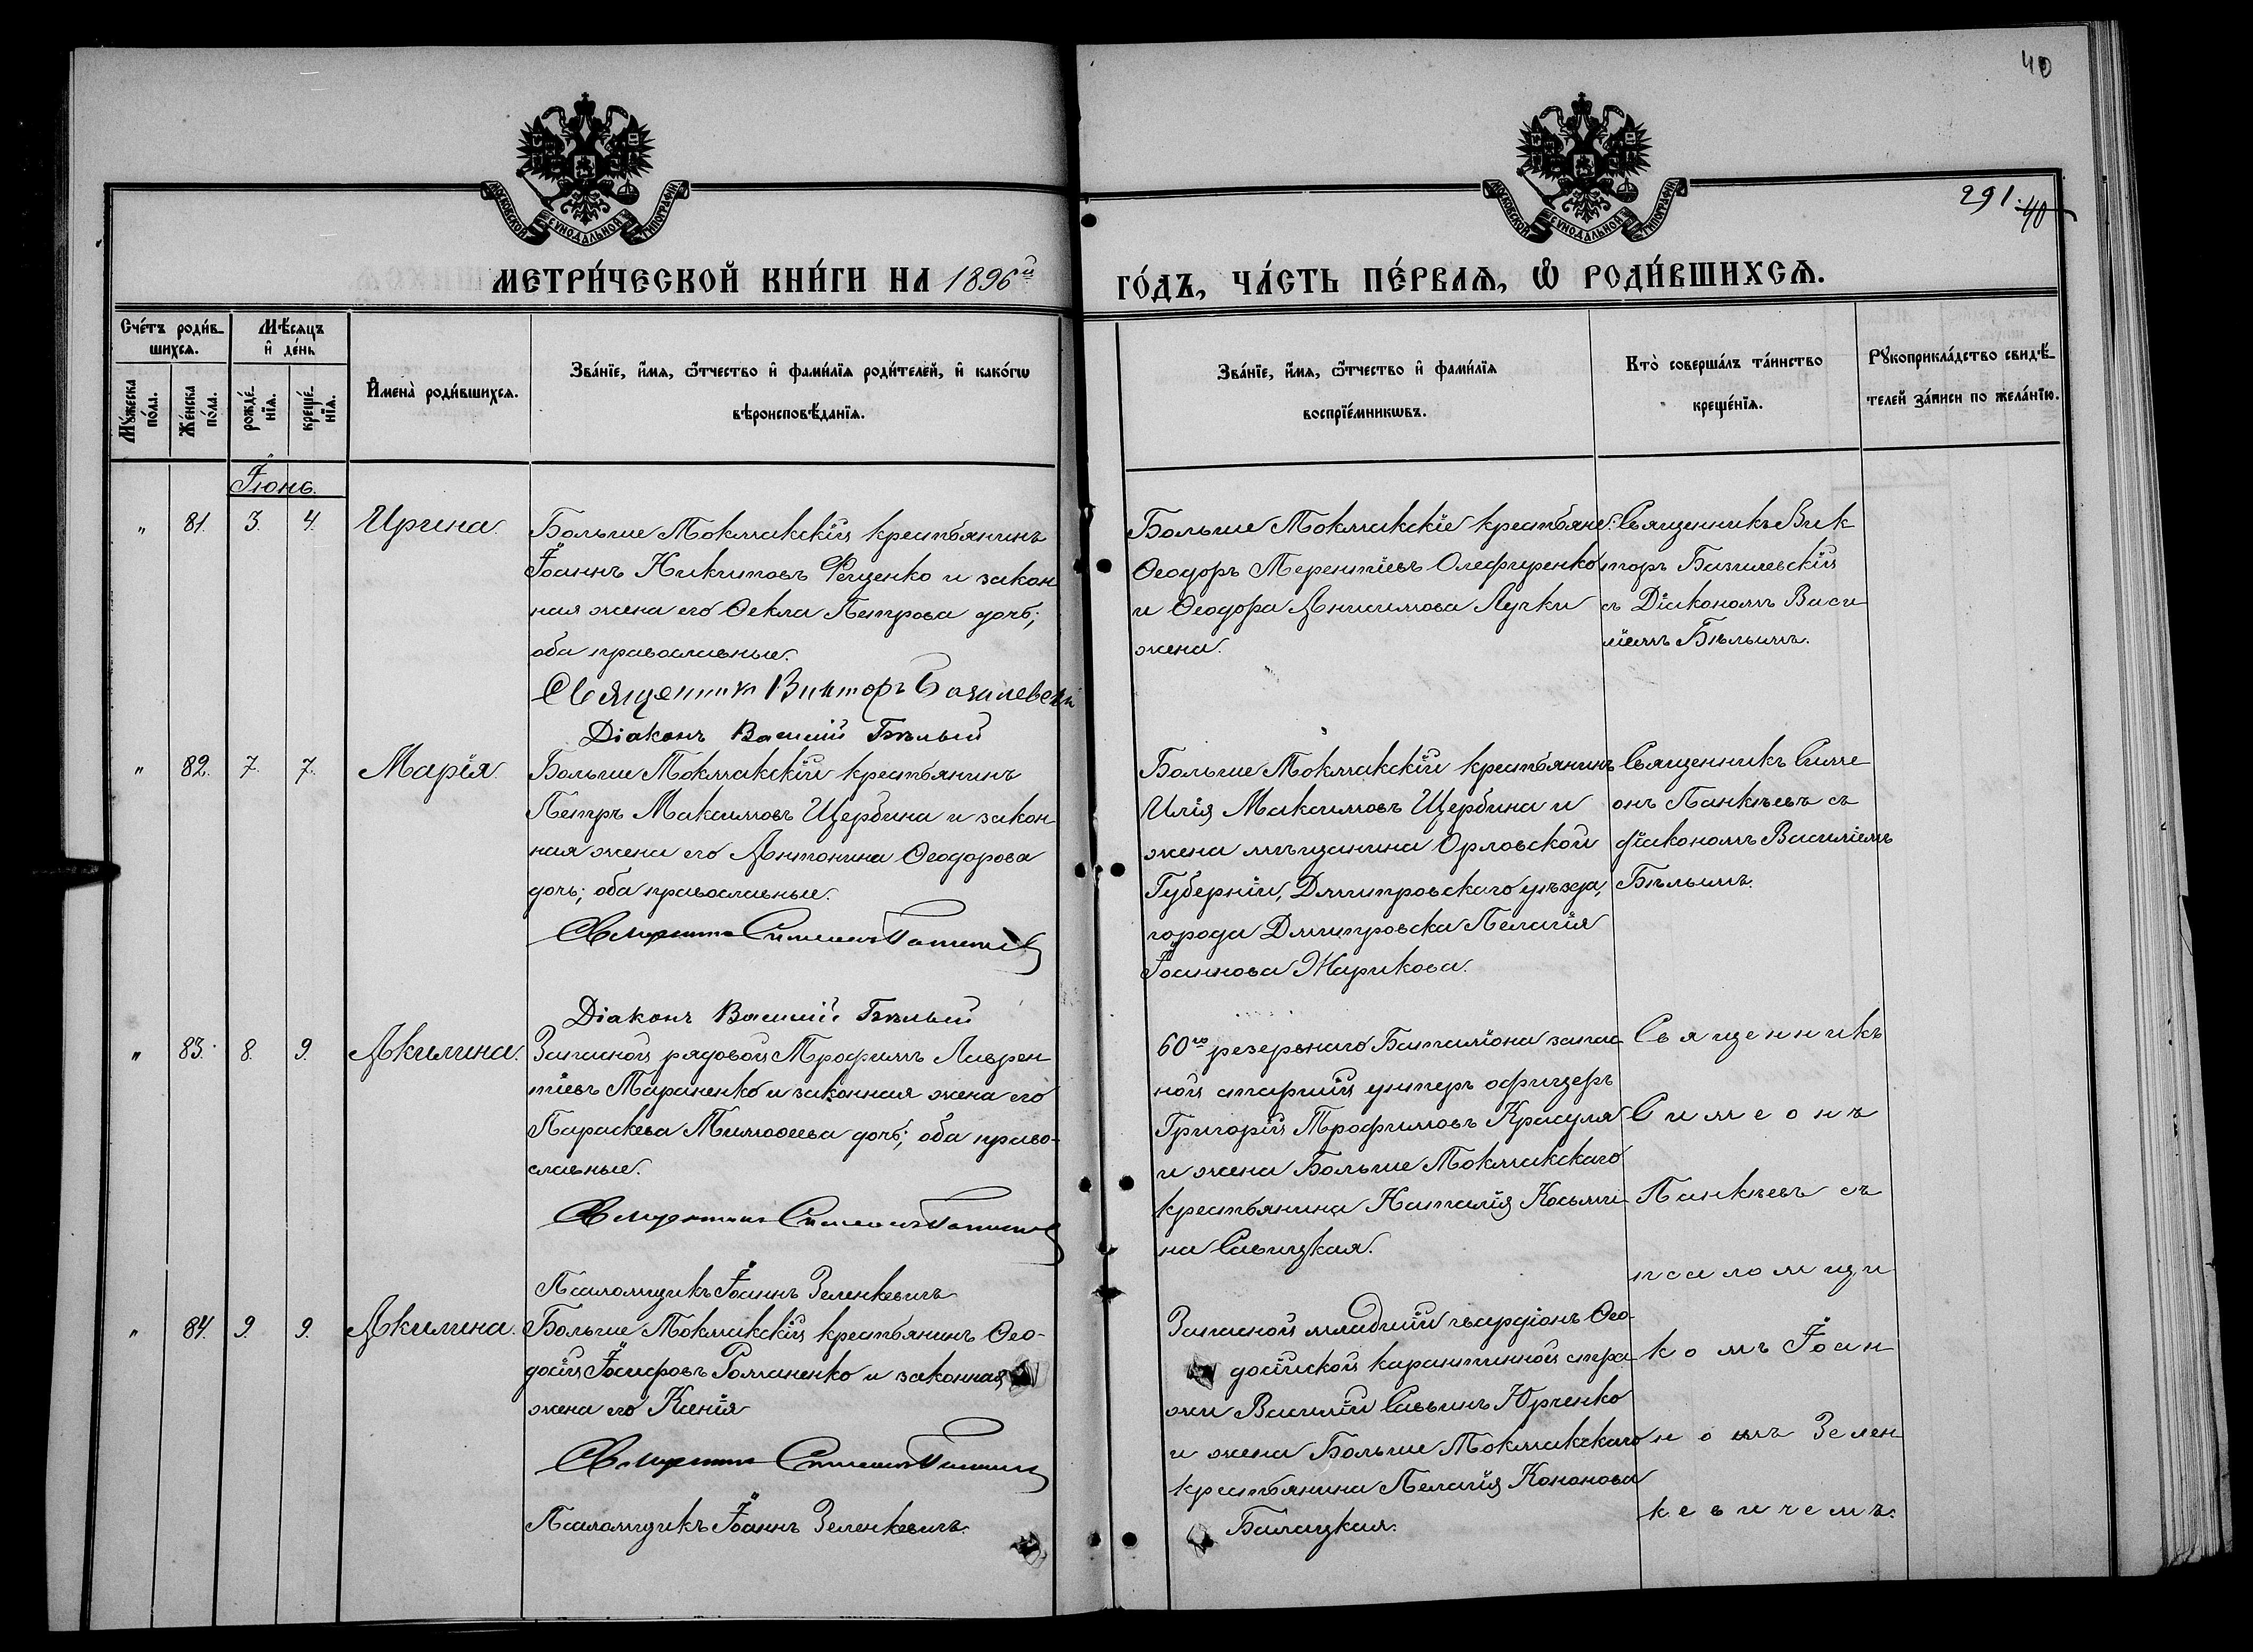 40
291. 40
МОСКОВСКОЙ СѴНОДАЛЬНОЙ ТИПОГРАФІИ
МОСКОВСКОЙ СѴНОДАЛЬНОЙ ТИПОГРАФІИ
МЕТРИ́ЧЕСКОЙ КНИ́ГИ НА 1896й
ГО́ДЪ, ЧА́СТЬ ПЕ́РВАѦ, Ѽ РОДИ́ВШИХСѦ.
Сче́тъ роди́в-
шихсѧ.
Мꙋ́жеска
по́ла.
Же́нска
по́ла.
Мѣ́сѧцъ
и҆ де́нь
рожде́-
нїѧ.
креще́-
нїѧ.
И҆мена̀ роди́вшихсѧ.
Зва́нїе, и҆́мѧ, ѻ҆́тчество и҆ фами́лїѧ роди́телей, и҆ како́гѡ
вѣроисповѣ́данїѧ.
Зва́нїе, и҆́мѧ, ѻ҆́тчество и҆ фами́лїѧ
воспрїе́мникѡвъ.
Кто̀ соверша́лъ та́инство
креще́нїѧ.
Рꙋкоприкла́дство свидѣ́-
телей за́писи по жела́нїю.
Іюнь.
" 81. 3. 4. Ирина.
Больше Токмакскій крестьянинъ
Іоаннъ Никитовъ Фещенко и закон
ная жена его Ѳекла Петрова дочь;
оба православные.
Священникъ Викторъ Базилевскій
Діаконъ Василій Бѣлый
Больше Токмакскіе крестьяне:
Ѳеодоръ Терентіевъ Олефиренко
и Ѳеодора Анисимова Лучки
жена.
Священникъ Вик
торъ Базилевскій
съ Діакономъ Васи
ліемъ Бѣлымъ.
" 82. 7. 7. Марія.
Больше Токмакскій крестьянинъ
Петръ Максимовъ Щербина и закон
ная жена его Антонина Ѳеодорова
дочь; оба православные.
Священникъ Симеонъ Панкѣевъ
Діаконъ Василій Бѣлый
Больше Токмакскій крестьянинъ
Илія Максимовъ Щербина и
жена мѣщанина Орловской
Губерніи, Дмитровскаго уѣзда,
города Дмитровска Пелагія
Іоаннова Жарикова.
Священникъ Симе
онъ Панкѣевъ съ
діакономъ Василіемъ
Бѣлымъ.
" 83. 8. 9. Акилина.
Запасной рядовой Трофимъ Лаврен
тіевъ Тараненко и законная жена его
Параскева Тимоѳеева дочь; оба право-
славные.
Священникъ Симеонъ Панкѣевъ
Псаломщикъ Іоаннъ Зеленкевичъ
60го резервнаго Баталіона запас
ной старшій унтеръ офицеръ
Григорій Трофимовъ Красуля
и жена Больше Токмакскаго
крестьянина Наталія Косьми
на Савицкая.
Священникъ
Симеонъ
Панкѣевъ съ
псаломщи
" 84. 9. 9. Акилина.
Больше Токмакскій крестьянинъ Ѳео-
досій Іосифовъ Романенко и законная
жена его Ксенія
Священникъ Симеонъ Панкѣевъ
Псаломщикъ Іоаннъ Зеленкевичъ.
Запасной младшій гвардіонъ Ѳео-
досійской карантинной стра
жи Василій Саввинъ Юрченко
и жена Больше Токмакскаго
крестьянина Пелагія Кононова
Балацкая.
комъ Іоан
номъ Зелен
кевичемъ.